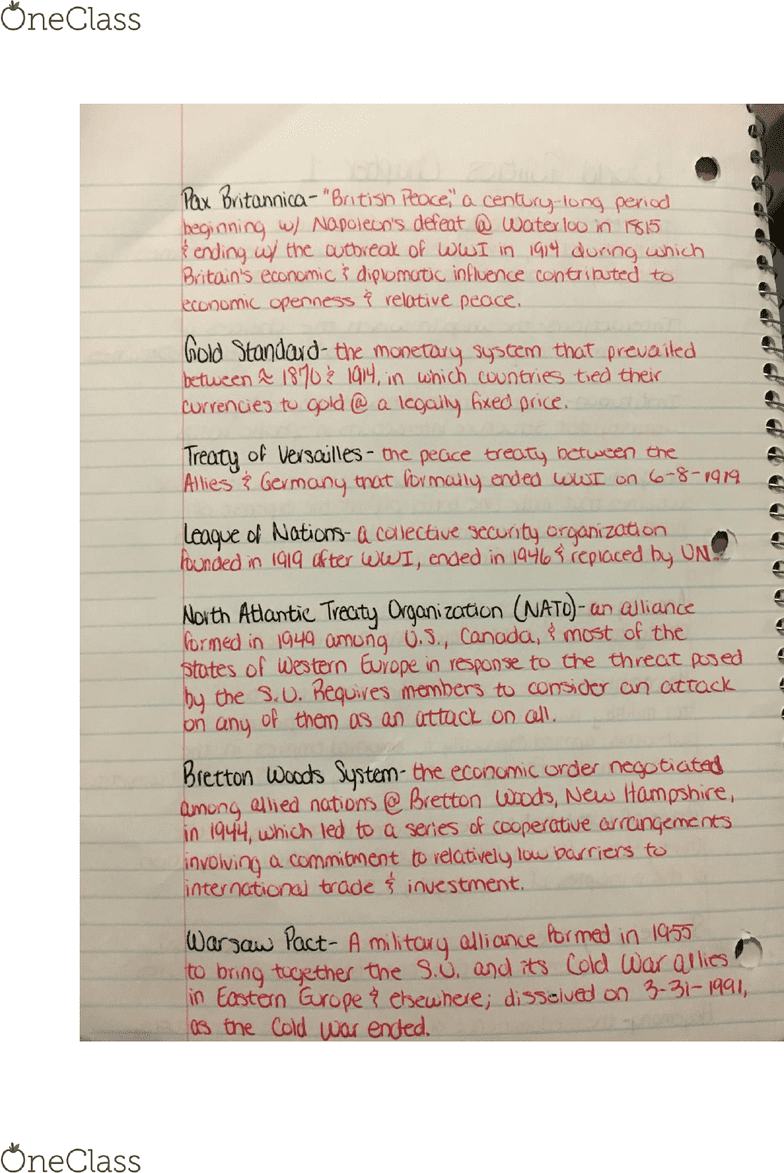 OneClass
Pax Britannica- "British Peace," a century-long period
beginning w/ Napoleon's defeat @ Waterloo in 1815
& ending w/ the outbreak of WWI in 1914 during which
Britain's economic & diplomatic influence contributed to
economic openness & relative peace.
Gold Standard- the monetary system that prevailed
between ≈ 1870 & 1914, in which countries tied their
currencies to gold @ a legally fixed price.
Treaty of Versailles- the peace treaty between the
Allies & Germany that formally ended WWI on 6-8-1919
League of Nations- a collective security organization
founded in 1919 after WWI, ended in 1946 & replaced by UN.
North Atlantic Treaty Organization (NATO)- an alliance
formed in 1949 among U.S., Canada, & most of the
states of Western Europe in response to the threat posed
by the S.U. Requires members to consider an attack
on any of them as an attack on all.
Bretton Woods System- the economic order negotiated
among allied nations @ Bretton Woods, New Hampshire,
in 1944, which led to a series of cooperative arrangements
involving a commitment to relatively low barriers to
international trade & investment.
Warsaw Pact- A military alliance formed in 1955
to bring together the S.U. and its Cold War allies
in Eastern Europe & elsewhere; dissolved on 3-31-1991,
as the Cold War ended.
OneClass